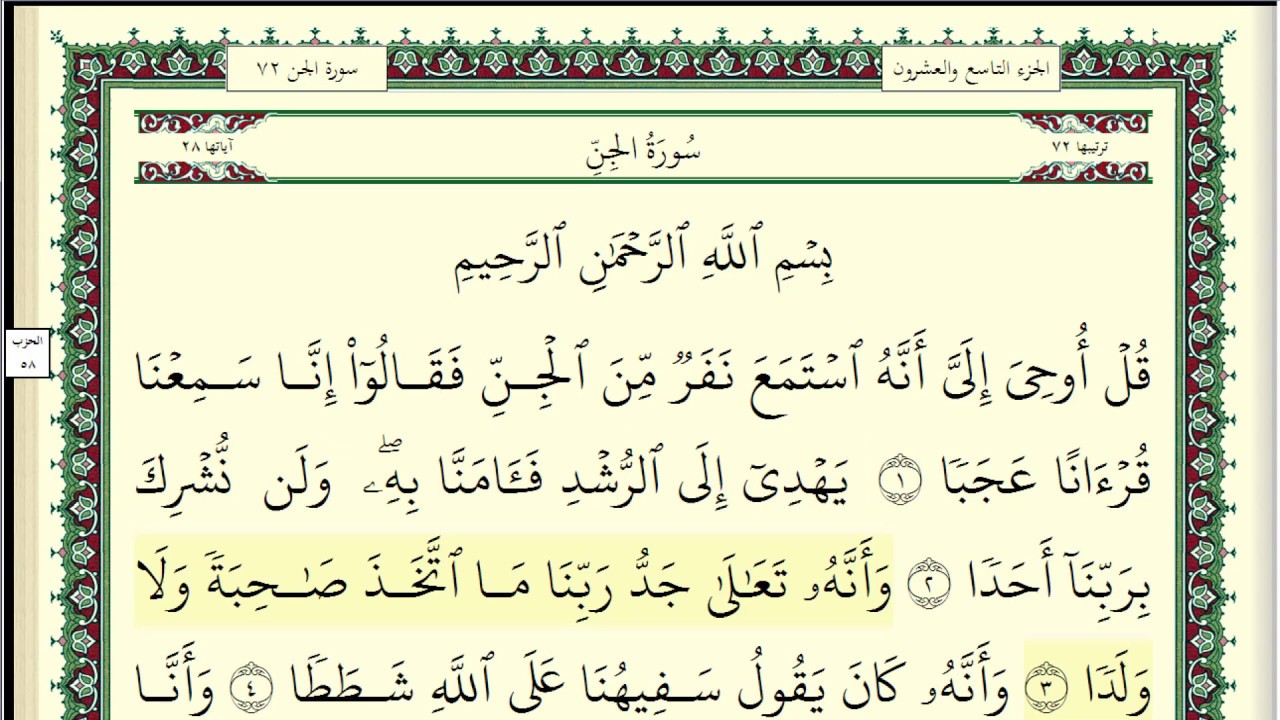 الجزء التاسع والعشرون
سورة الجن ٧٢
ترتيبها ٧٢
سُورَةُ الجِنِّ
آياتها ٢٨
بِسْمِ ٱللَّهِ ٱلرَّحْمَٰنِ ٱلرَّحِيمِ
قُلْ أُوحِىَ إِلَىَّ أَنَّهُ ٱسْتَمَعَ نَفَرٌ مِّنَ ٱلْجِنِّ فَقَالُوٓا۟ إِنَّا سَمِعْنَا
قُرْءَانًا عَجَبًا ١ يَهْدِىٓ إِلَى ٱلرُّشْدِ فَـَٔامَنَّا بِهِۦ ۖ وَلَن نُّشْرِكَ
بِرَبِّنَآ أَحَدًا ٢ وَأَنَّهُۥ تَعَٰلَىٰ جَدُّ رَبِّنَا مَا ٱتَّخَذَ صَٰحِبَةً وَلَا
وَلَدًا ٣ وَأَنَّهُۥ كَانَ يَقُولُ سَفِيهُنَا عَلَى ٱللَّهِ شَطَطًا ٤ وَأَنَّا
الحزب
٥٨